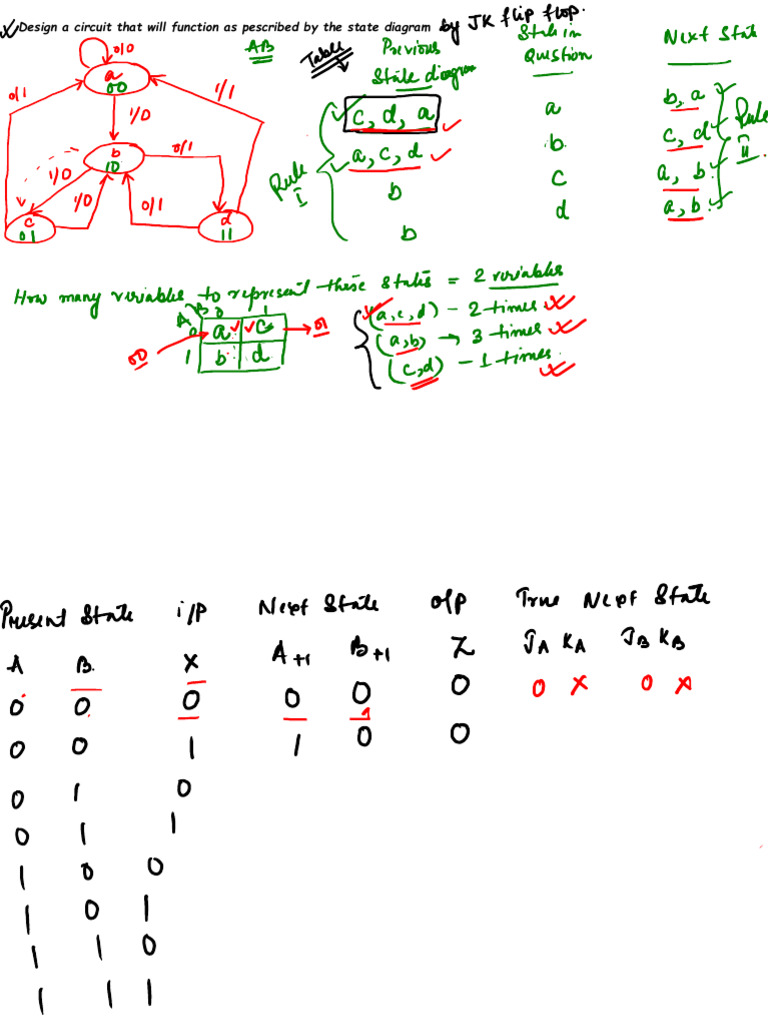 Design a circuit that will function as pescribed by the state diagram by JK flip flop.
0/0
AB
Table
Previous State diagram
State in Question
Next State
a
00
0/1
1/0
1/1
c, d, a
a
b, a
Rule II
b
10
0/1
a, c, d
b
c, d
1/0
1/0
0/1
Rule I
b
c
a, b
c
01
d
11
b
d
a, b
How many variables to represent these states = 2 variables
A B 0 1
0 a c 01
00
1 b d
(a, c, d) - 2 times
(a, b) → 3 times
(c, d) - 1 times
Present State i/p Next State o/p True Next State
A B X A+1 B+1 Z JA KA JB KB
0 0 0 0 0 0 0 X 0 X
0 0 1 1 0 0
0 1 0
0 1 1
1 0 0
1 0 1
1 1 0
1 1 1